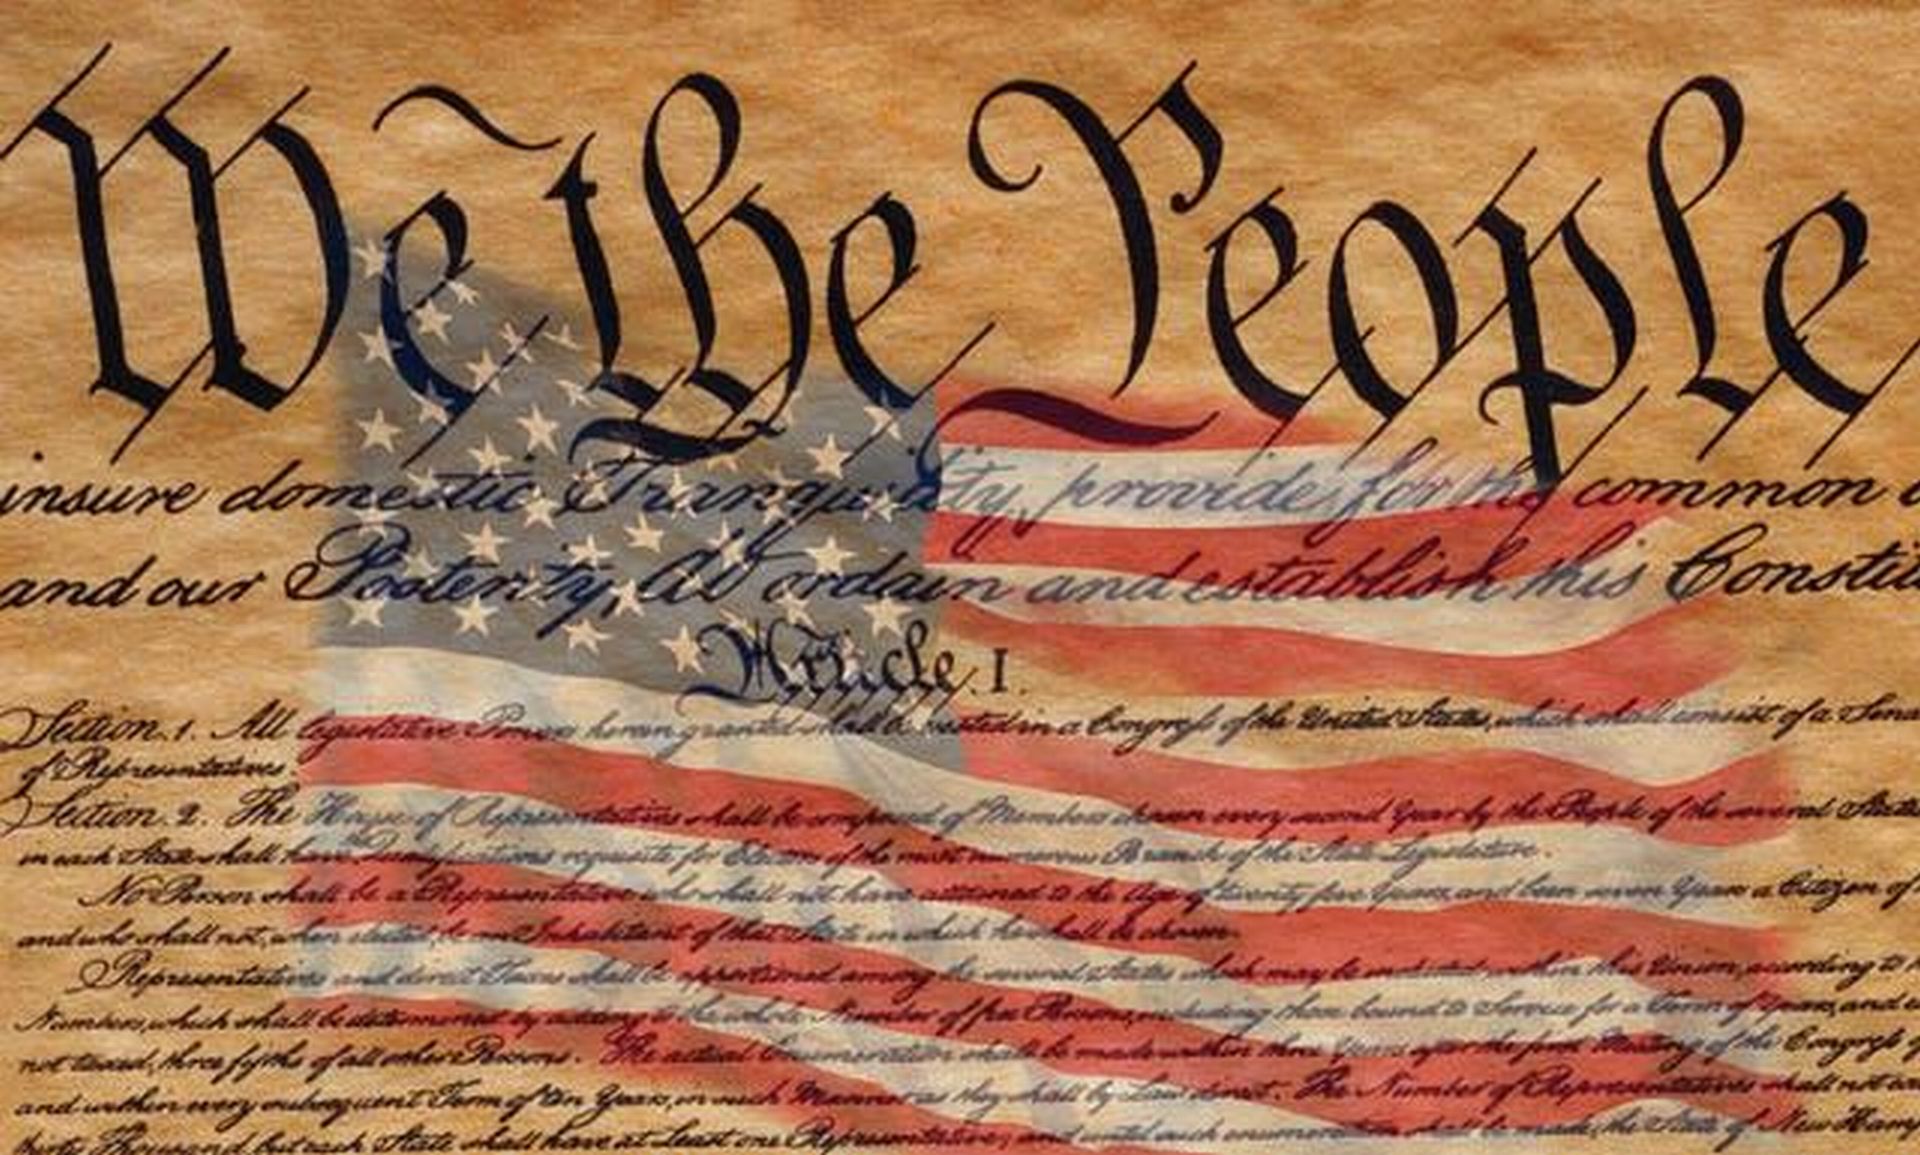 We the People
insure domestic Tranquility, provide for the common
and our Posterity, do ordain and establish this Constit
Article. I.
Section. 1. All legislative Powers herein granted shall be vested in a Congress of the United States, which shall consist of a Sena
of Representatives.
Section. 2. The House of Representatives shall be composed of Members chosen every second Year by the People of the several States
in each State shall have the Qualifications requisite for Electors of the most numerous Branch of the State Legislature.
No Person shall be a Representative who shall not have attained to the Age of twenty five Years, and been seven Years a Citizen of
and who shall not, when elected, be an Inhabitant of that State in which he shall be chosen.
Representatives and direct Taxes shall be apportioned among the several States which may be included within this Union, according to
Numbers, which shall be determined by adding to the whole Number of free Persons, including those bound to Service for a Term of Years, and
not taxed, three fifths of all other Persons. The actual Enumeration shall be made within three Years after the first Meeting of the Congress of
and within every subsequent Term of ten Years, in such Manner as they shall by Law direct. The Number of Representatives shall not
thirty Thousand, but each State shall have at Least one Representative; and until such enumeration shall be made, the State of New Hamp